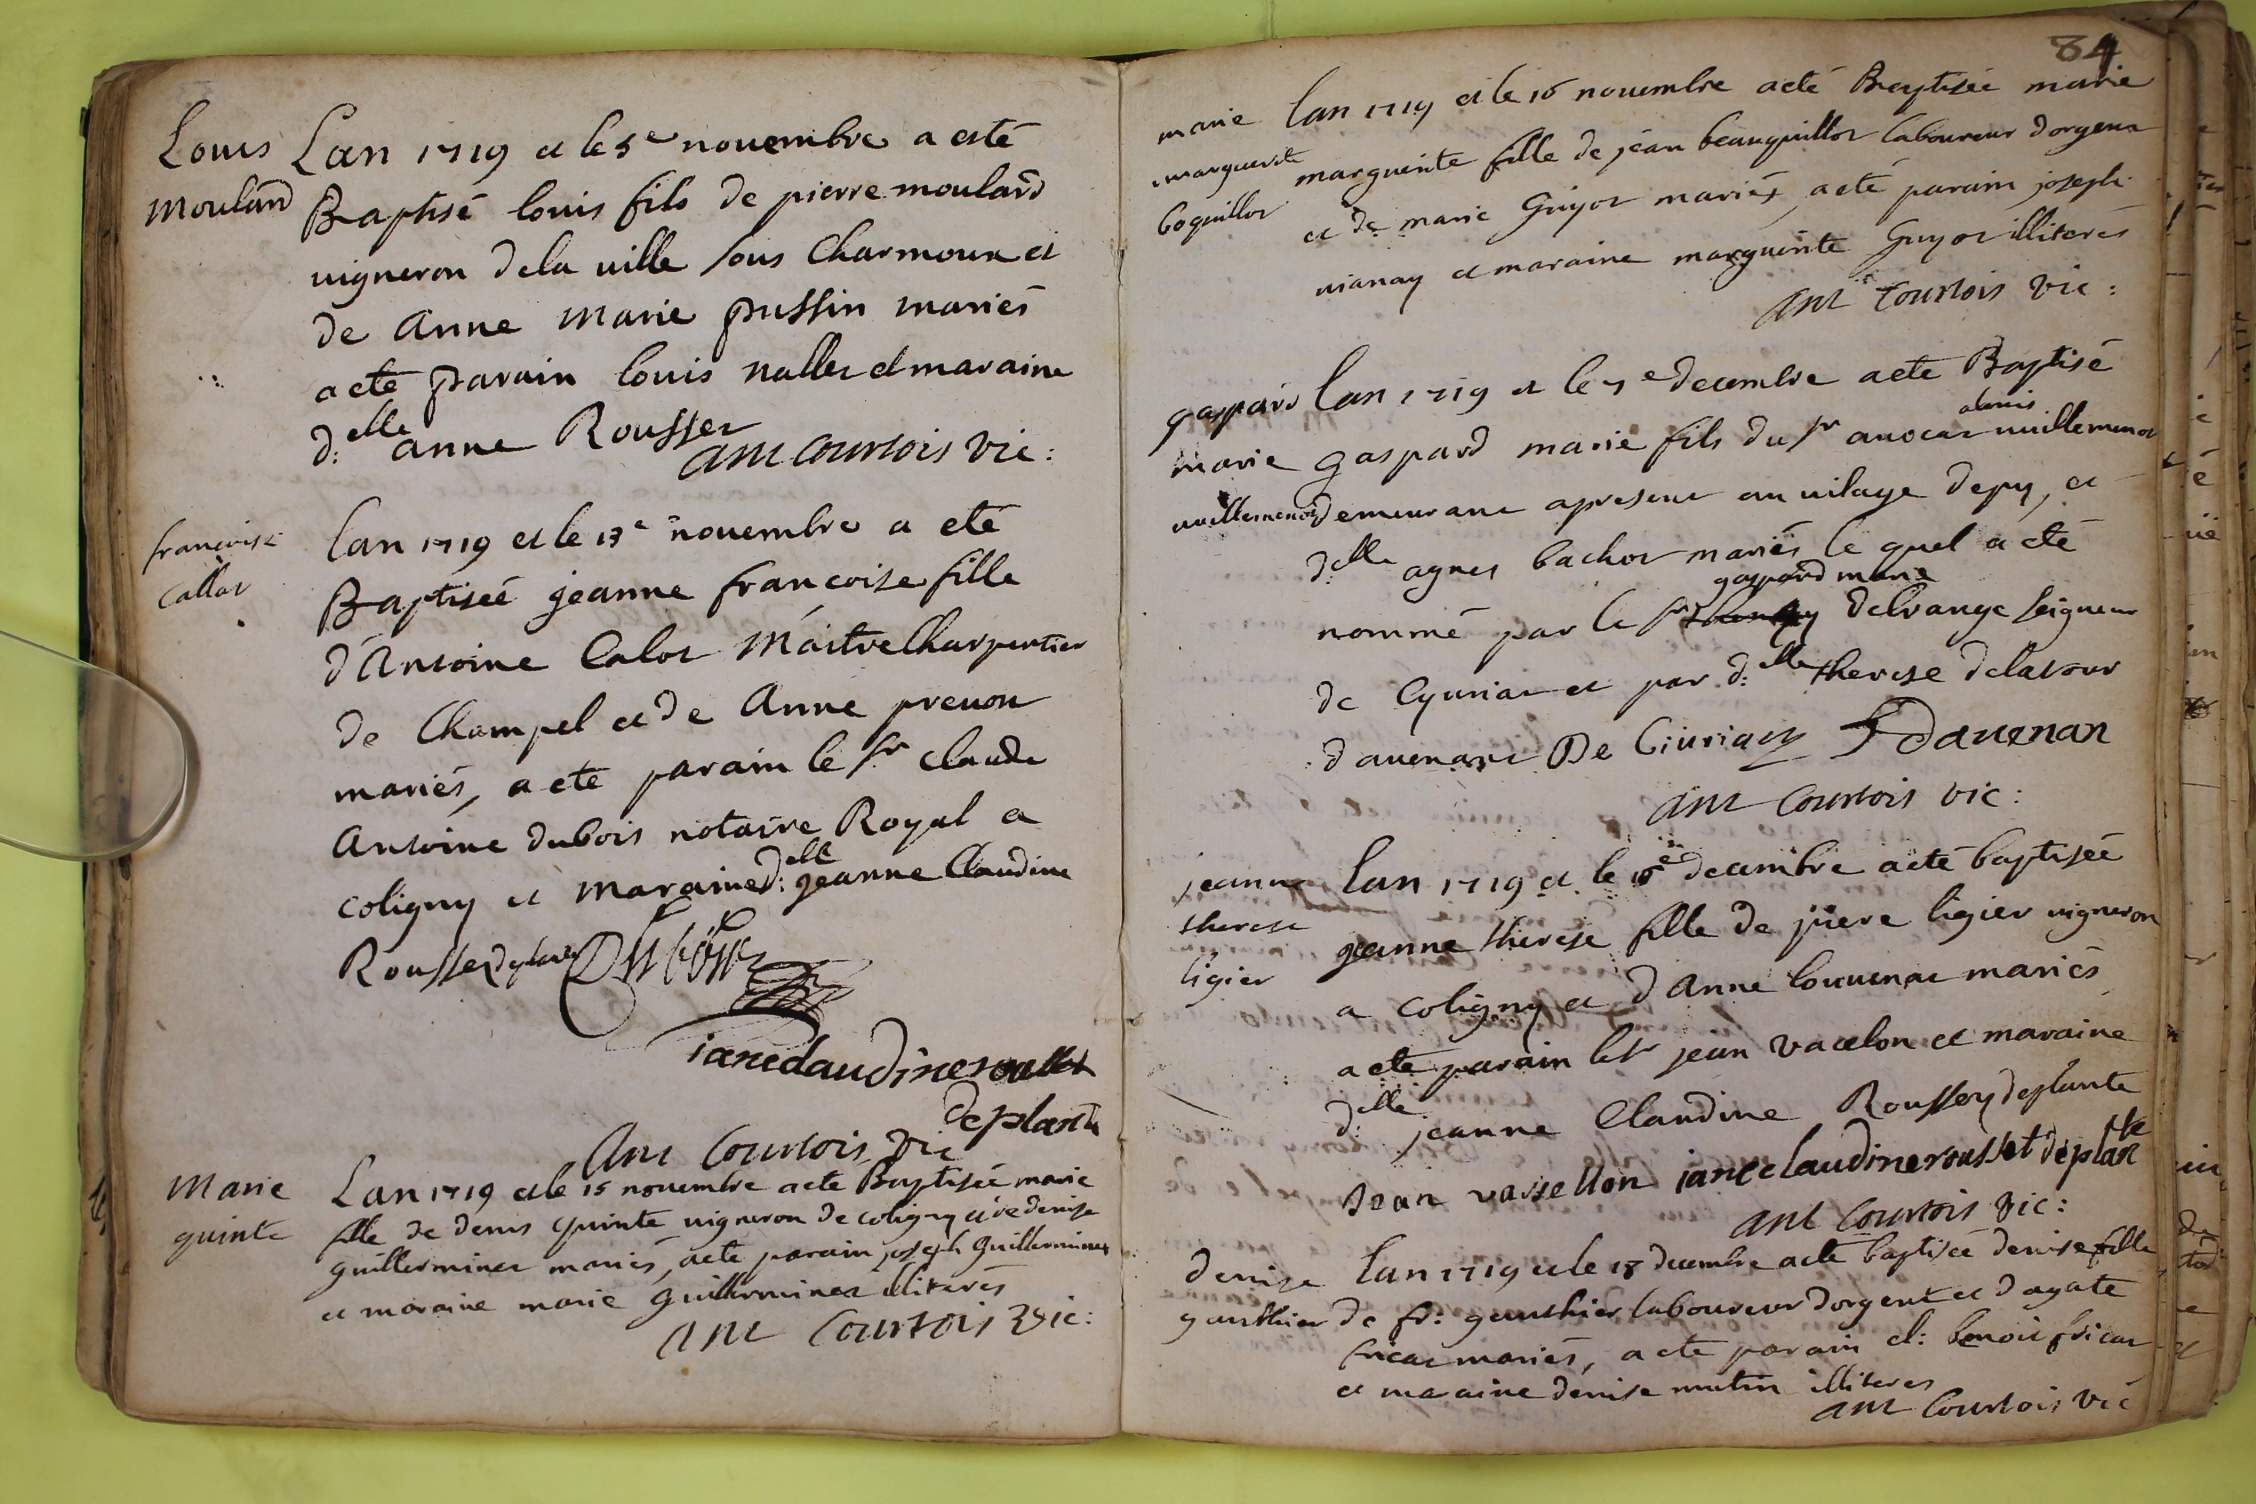 Louis
Mouland
Lan 1719 et le 5e nouembre a esté
Baptisé louis fils de pierre moulard
uigneron dela uille sous Charmoux et
de Anne Marie pussin mariés
a eté parain louis nallet et maraine
d:elle anne Rousset
ant courtois vic:
francoise
callot
lan 1719 et le 13e nouembre a eté
Baptiseé jeanne francoise fille
d'Antoine Calot Maitre Charpentier
de Champel et de Anne preuon
mariés, a eté parain le sr claude
Antoine dubois notaire Royal a
coligny et maraine d:elle jeanne Claudine
Rousset
Dubois
iane claudine rousset
deplante
Ant Courtois vic
Marie
quinte
Lan 1719 et le 15 nouembre a eté Baptisée marie
fille de denis quinte uigneron de coligny et de denise
guillerminet mariés, a eté parain joseph guillerminet
et maraine marie guillerminet illiterés
Ant Courtois Vic:
84
marie
marguerite
boquillot
lan 1719 et le 16 nouembre a eté Baptisée marie
marguerite fille de jean beauquillot laboureur dorgent
et de marie Guyot mariés, a eté parain joseph
uianay et maraine marguerite Guyot illiterés
Ant Courtois Vic:
gaspard
marie
uuillemenot
lan 1719 et le 7e decembre a eté Baptisé
denis
gaspard marie fils du sr auocat uuillemenot
demeurant apresent au uilage depy, et
d:elle agnes bachot mariés le quel a eté
gaspard marie
nommé par le sr delrange seigneur
de Cyuriat et par d:elle therese delatour
dauenant De Ciuriacy Dauenan
Ant Courtois vic:
jeanne
therese
ligier
lan 1719 et le 16e decembre a eté baptisée
jeanne therese fille de piere ligier uigneron
a coligny et d Anne louuenat mariés
a eté parain le sr jean vacelon et maraine
d:elle jeanne Claudine Rousset deplante
Jean vassellon iane claudine rousset deplante
Ant Courtois vic:
denise
gauthier
lan 1719 et le 18 decembre a eté baptisée denise fille
de fr: gauthier laboureur dorgent et dagate
fricat mariés, a eté parain cl: benoit fricat
et maraine denise mutin illiteres
Ant Courtois vic